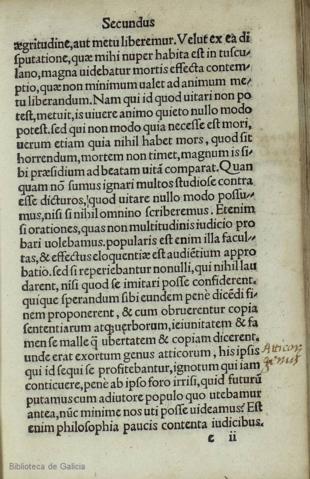 Secundus
ægritudine, aut metu liberemur. Velut ex ea di
sputatione, quæ mihi nuper habita est in tuscu⸗
lano, magna uidebatur mortis effecta contem⸗
ptio, quæ non minimum ualet ad animum me⸗
tu liberandum. Nam qui id quod uitari non po
test, metuit, is uiuere animo quieto nullo modo
potest. sed qui non modo quia necesse est mori,
uerum etiam quia nihil habet mors, quod sit
horrendum, mortem non timet, magnum is si⸗
bi præsidium ad beatam uitā comparat. Quan
quam nō sumus ignari multos studiose contra
esse dicturos, quod uitare nullo modo possu⸗
mus, nisi si nihil omnino scriberemus. Etenim
si orationes, quas non multitudinis iudicio pro
bari uolebamus. popularis est enim illa facul⸗
tas, & effectus eloquentiæ est audiētium appro
batio. sed si reperiebantur nonulli, qui nihil lau
darent, nisi quod se imitari posse confiderent.
quique sperandum sibi eundem penè dicēdi fi⸗
nem proponerent, & cum obruerentur copia
sententiarum atq; uerborum, ieiunitatem & fa
men se malle q̄ ubertatem & copiam dicerent.
unde erat exortum genus atticorum, his ipsis
qui id sequi se profitebantur, ignotum qui iam
conticuere, penè ab ipso foro irrisi, quid futurū
putamus cum adiutore populo quo utebamur
antea, nūc minime nos uti posse uideamus? Est
enim philosophia paucis contenta iudicibus.
c ii
Atticor
genus
Biblioteca de Galicia